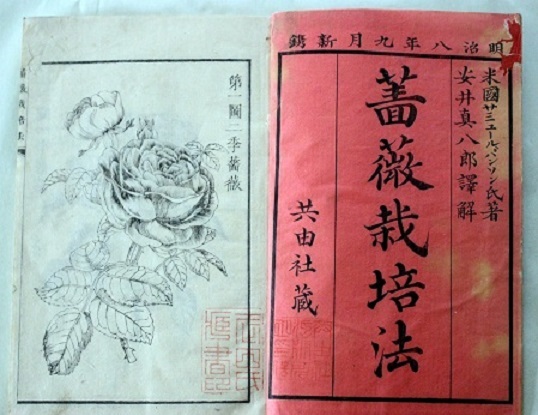 明治八年九月新鐫
米國サミユールパルソン氏著
安井真八郎譯解
薔薇栽培法
共由社蔵
第一圖二季薔薇